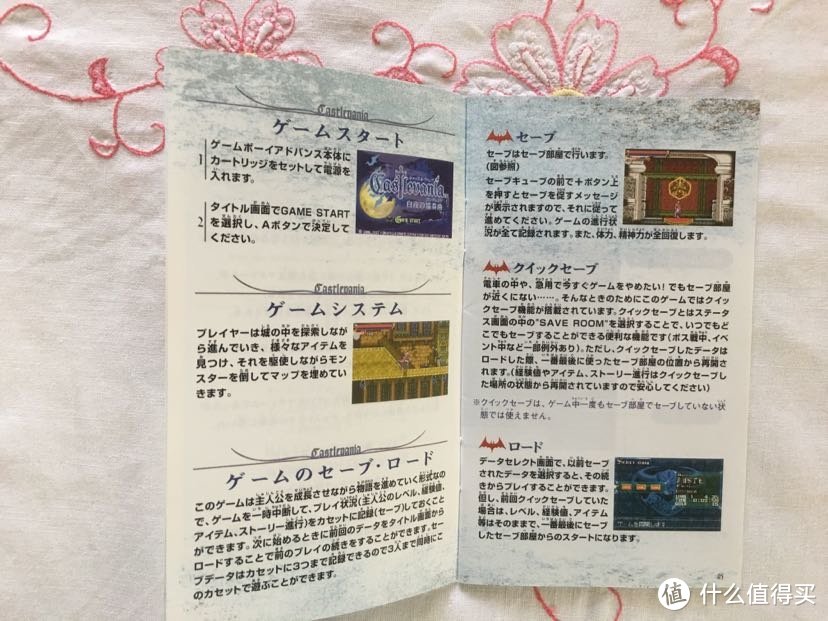 Castlevania
ゲームスタート
1
ゲームボーイアドバンス本体に
カートリッジをセットして電源を
入れます。
2
タイトル画面でGAME START
を選択し、Aボタンで決定して
ください。
Castlevania
白夜の協奏曲
GAME START
Castlevania
ゲームシステム
プレイヤーは城の中を探索しなが
ら進んでいき、様々なアイテムを
見つけ、それを駆使しながらモン
スターを倒してマップを埋めてい
きます。
Castlevania
ゲームのセーブ・ロード
このゲームは主人公を成長させながら物語を進めていく形式なの
で、ゲームを一時中断して、プレイ状況(主人公のレベル、経験値、
アイテム、ストーリー進行)をカセットに記録(セーブ)しておくこと
ができます。次に始めるときに前回のデータをタイトル画面から
ロードすることで前のプレイの続きをすることができます。セー
ブデータはカセットに3つまで記録できるので3人まで同時にこ
のカセットで遊ぶことができます。
セーブ
セーブはセーブ部屋で行います。
(図参照)
セーブキューブの前で+ボタン上
を押すとセーブを促すメッセージ
が表示されますので、それに従って
進めてください。ゲームの進行状
況が全て記録されます。また、体力、精神力が全回復します。
クイックセーブ
電車の中や、急用で今すぐゲームをやめたい!でもセーブ部屋
が近くにない……。そんなときのためにこのゲームではクイッ
クセーブ機能が搭載されています。クイックセーブとはステータ
ス画面の中の"SAVE ROOM"を選択することで、いつでもど
こでもセーブすることができる便利な機能です(ボス戦中、イベ
ント中など一部例外あり)。ただし、クイックセーブしたデータは
ロードした際、一番最後に使ったセーブ部屋の位置から再開され
ます。(経験値やアイテム、ストーリー進行はクイックセーブし
た場所の状態から再開されていますので安心してください)
※クイックセーブは、ゲーム中一度もセーブ部屋でセーブしていない状
態では使えません。
ロード
データセレクト画面で、以前セーブ
されたデータを選択すると、その続
きからプレイすることができます。
但し、前回クイックセーブしていた
場合は、レベル、経験値、アイテム
等はそのままで、一番最後にセーブ
したセーブ部屋からのスタートになります。
値 什么值得买